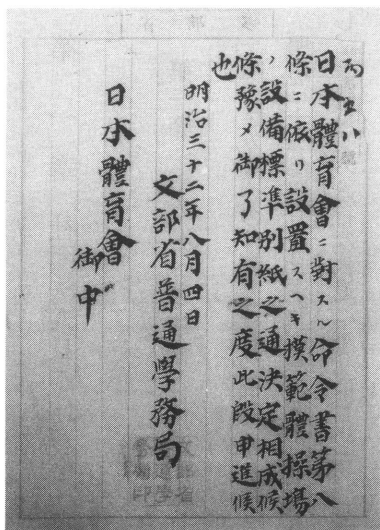 丙五八號
日本體育會ニ對スル命令書第八
條ニ依リ設置スヘキ摸範體操場
ノ設備標準別紙之通決定相成候
條豫メ御了知有之度此段申進候
也
明治三十二年八月四日
文部省普通學務局
日本體育會
御中